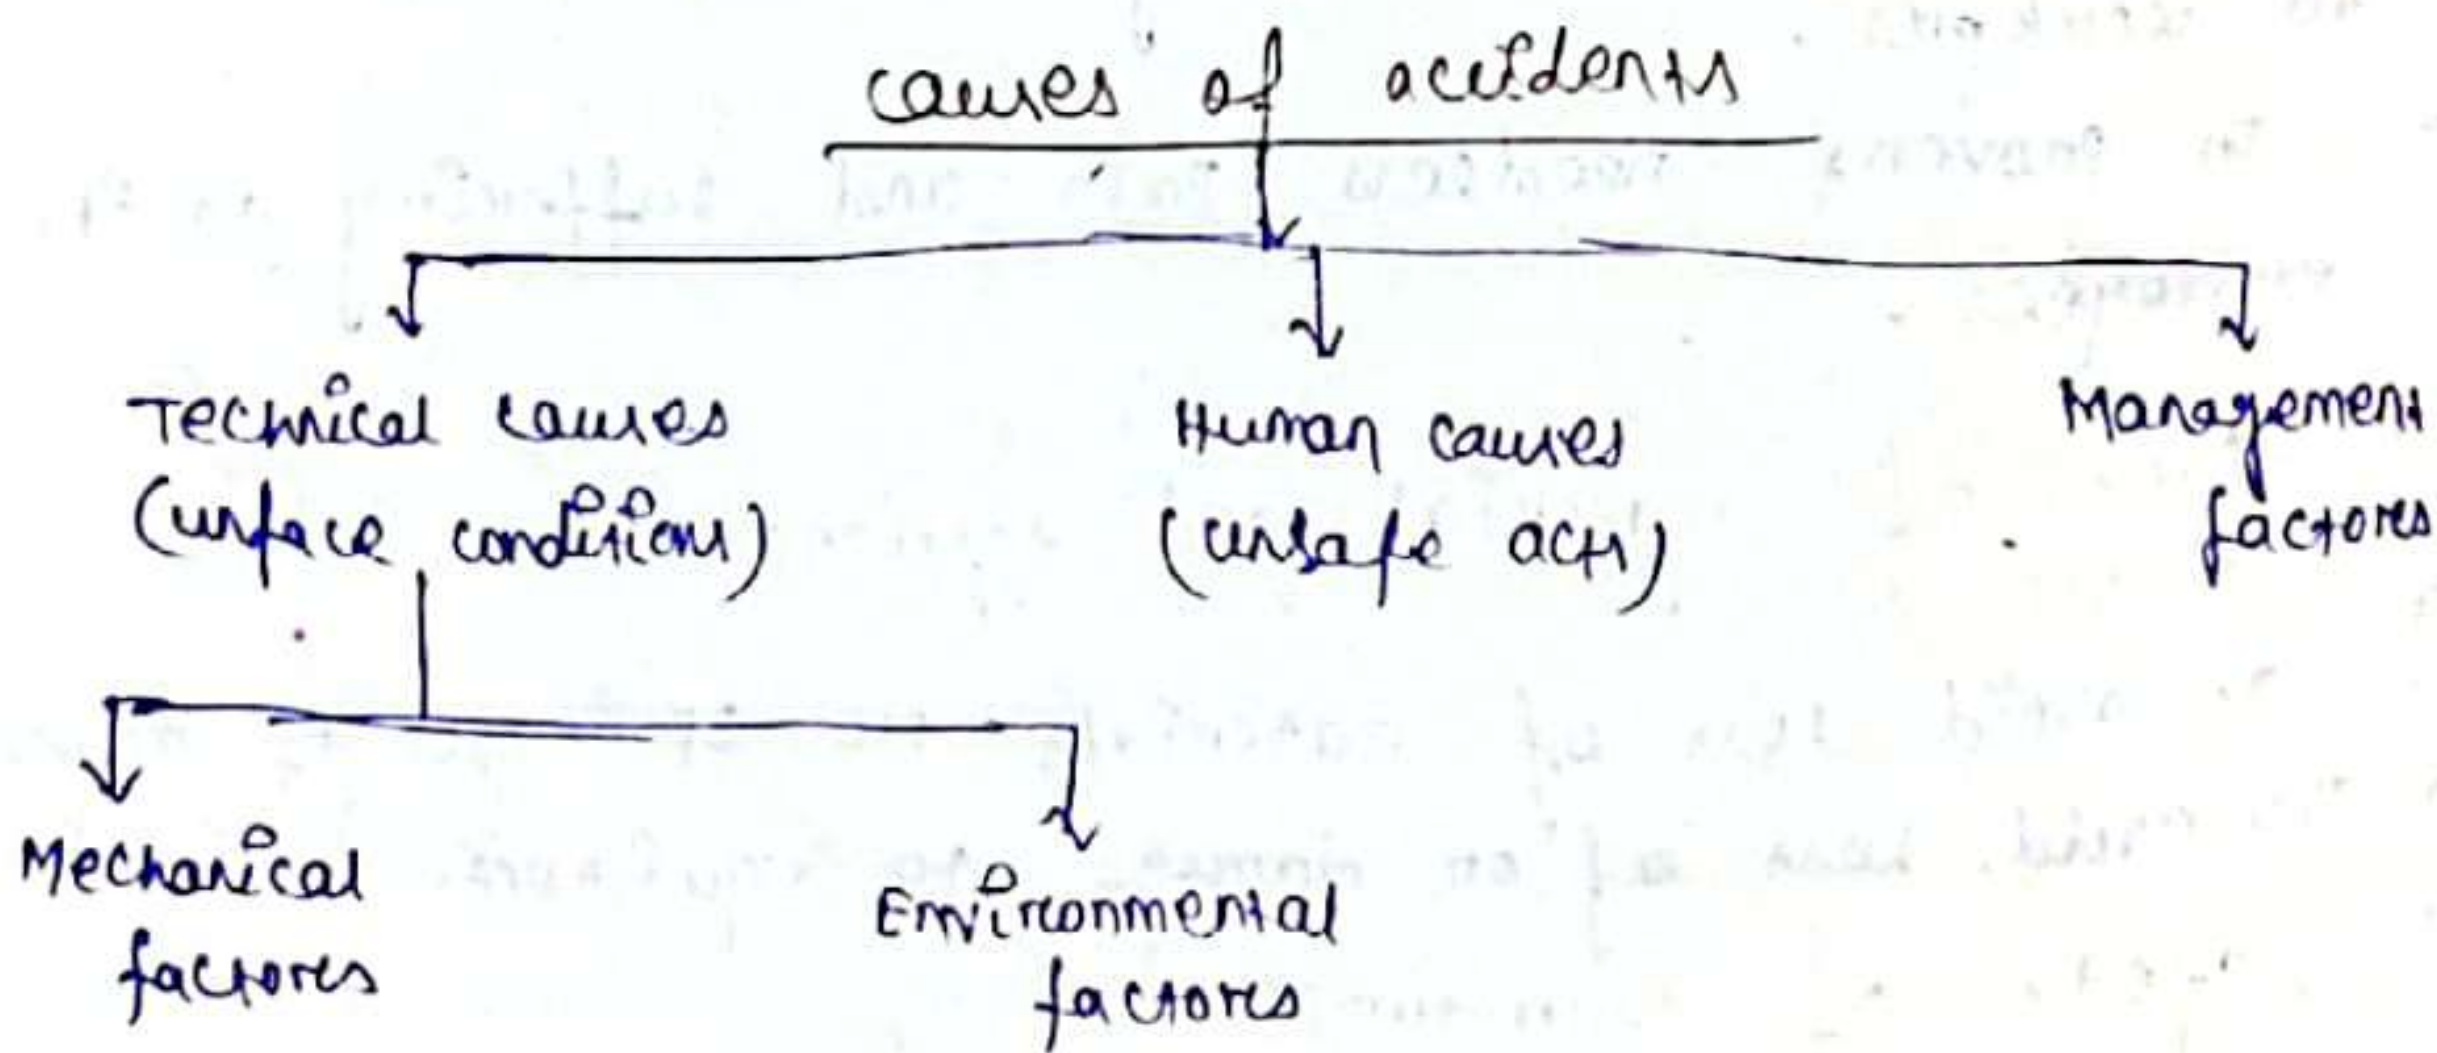 causes of accidents
Technical causes
(unface conditions)
Human causes
(unsafe acts)
Management
factores
Mechanical
factores
Environmental
factores